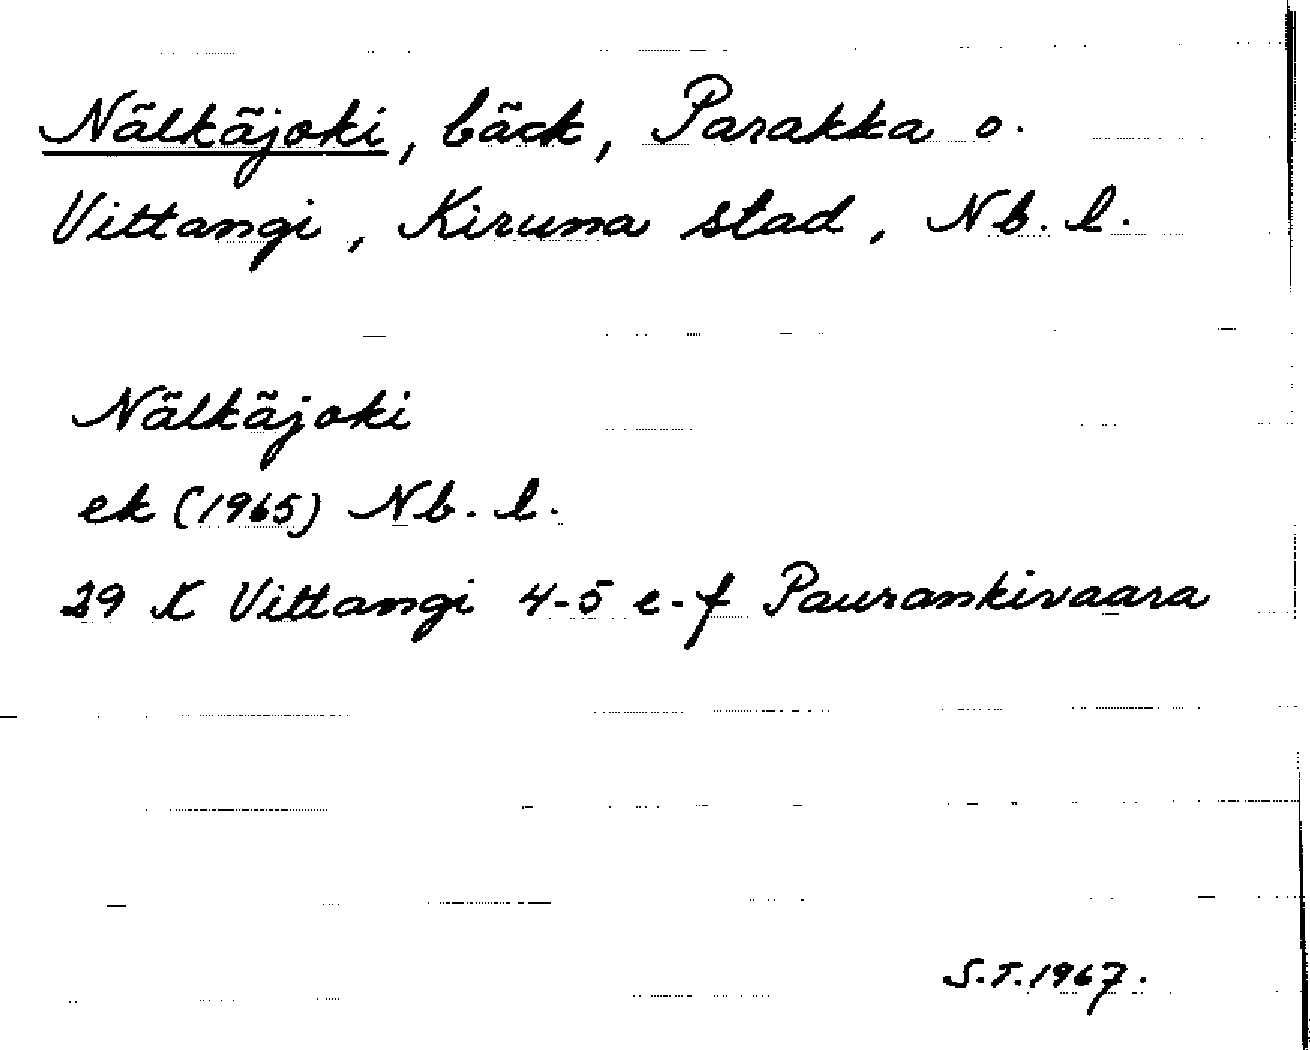 Nälkäjoki, bäck, Parakka o.
Vittangi, Kiruna stad, Nb. l.
Nälkäjoki
ek (1965) Nb. l.
29 K Vittangi 4-5 e-f Paurankivaara
S.T. 1967.